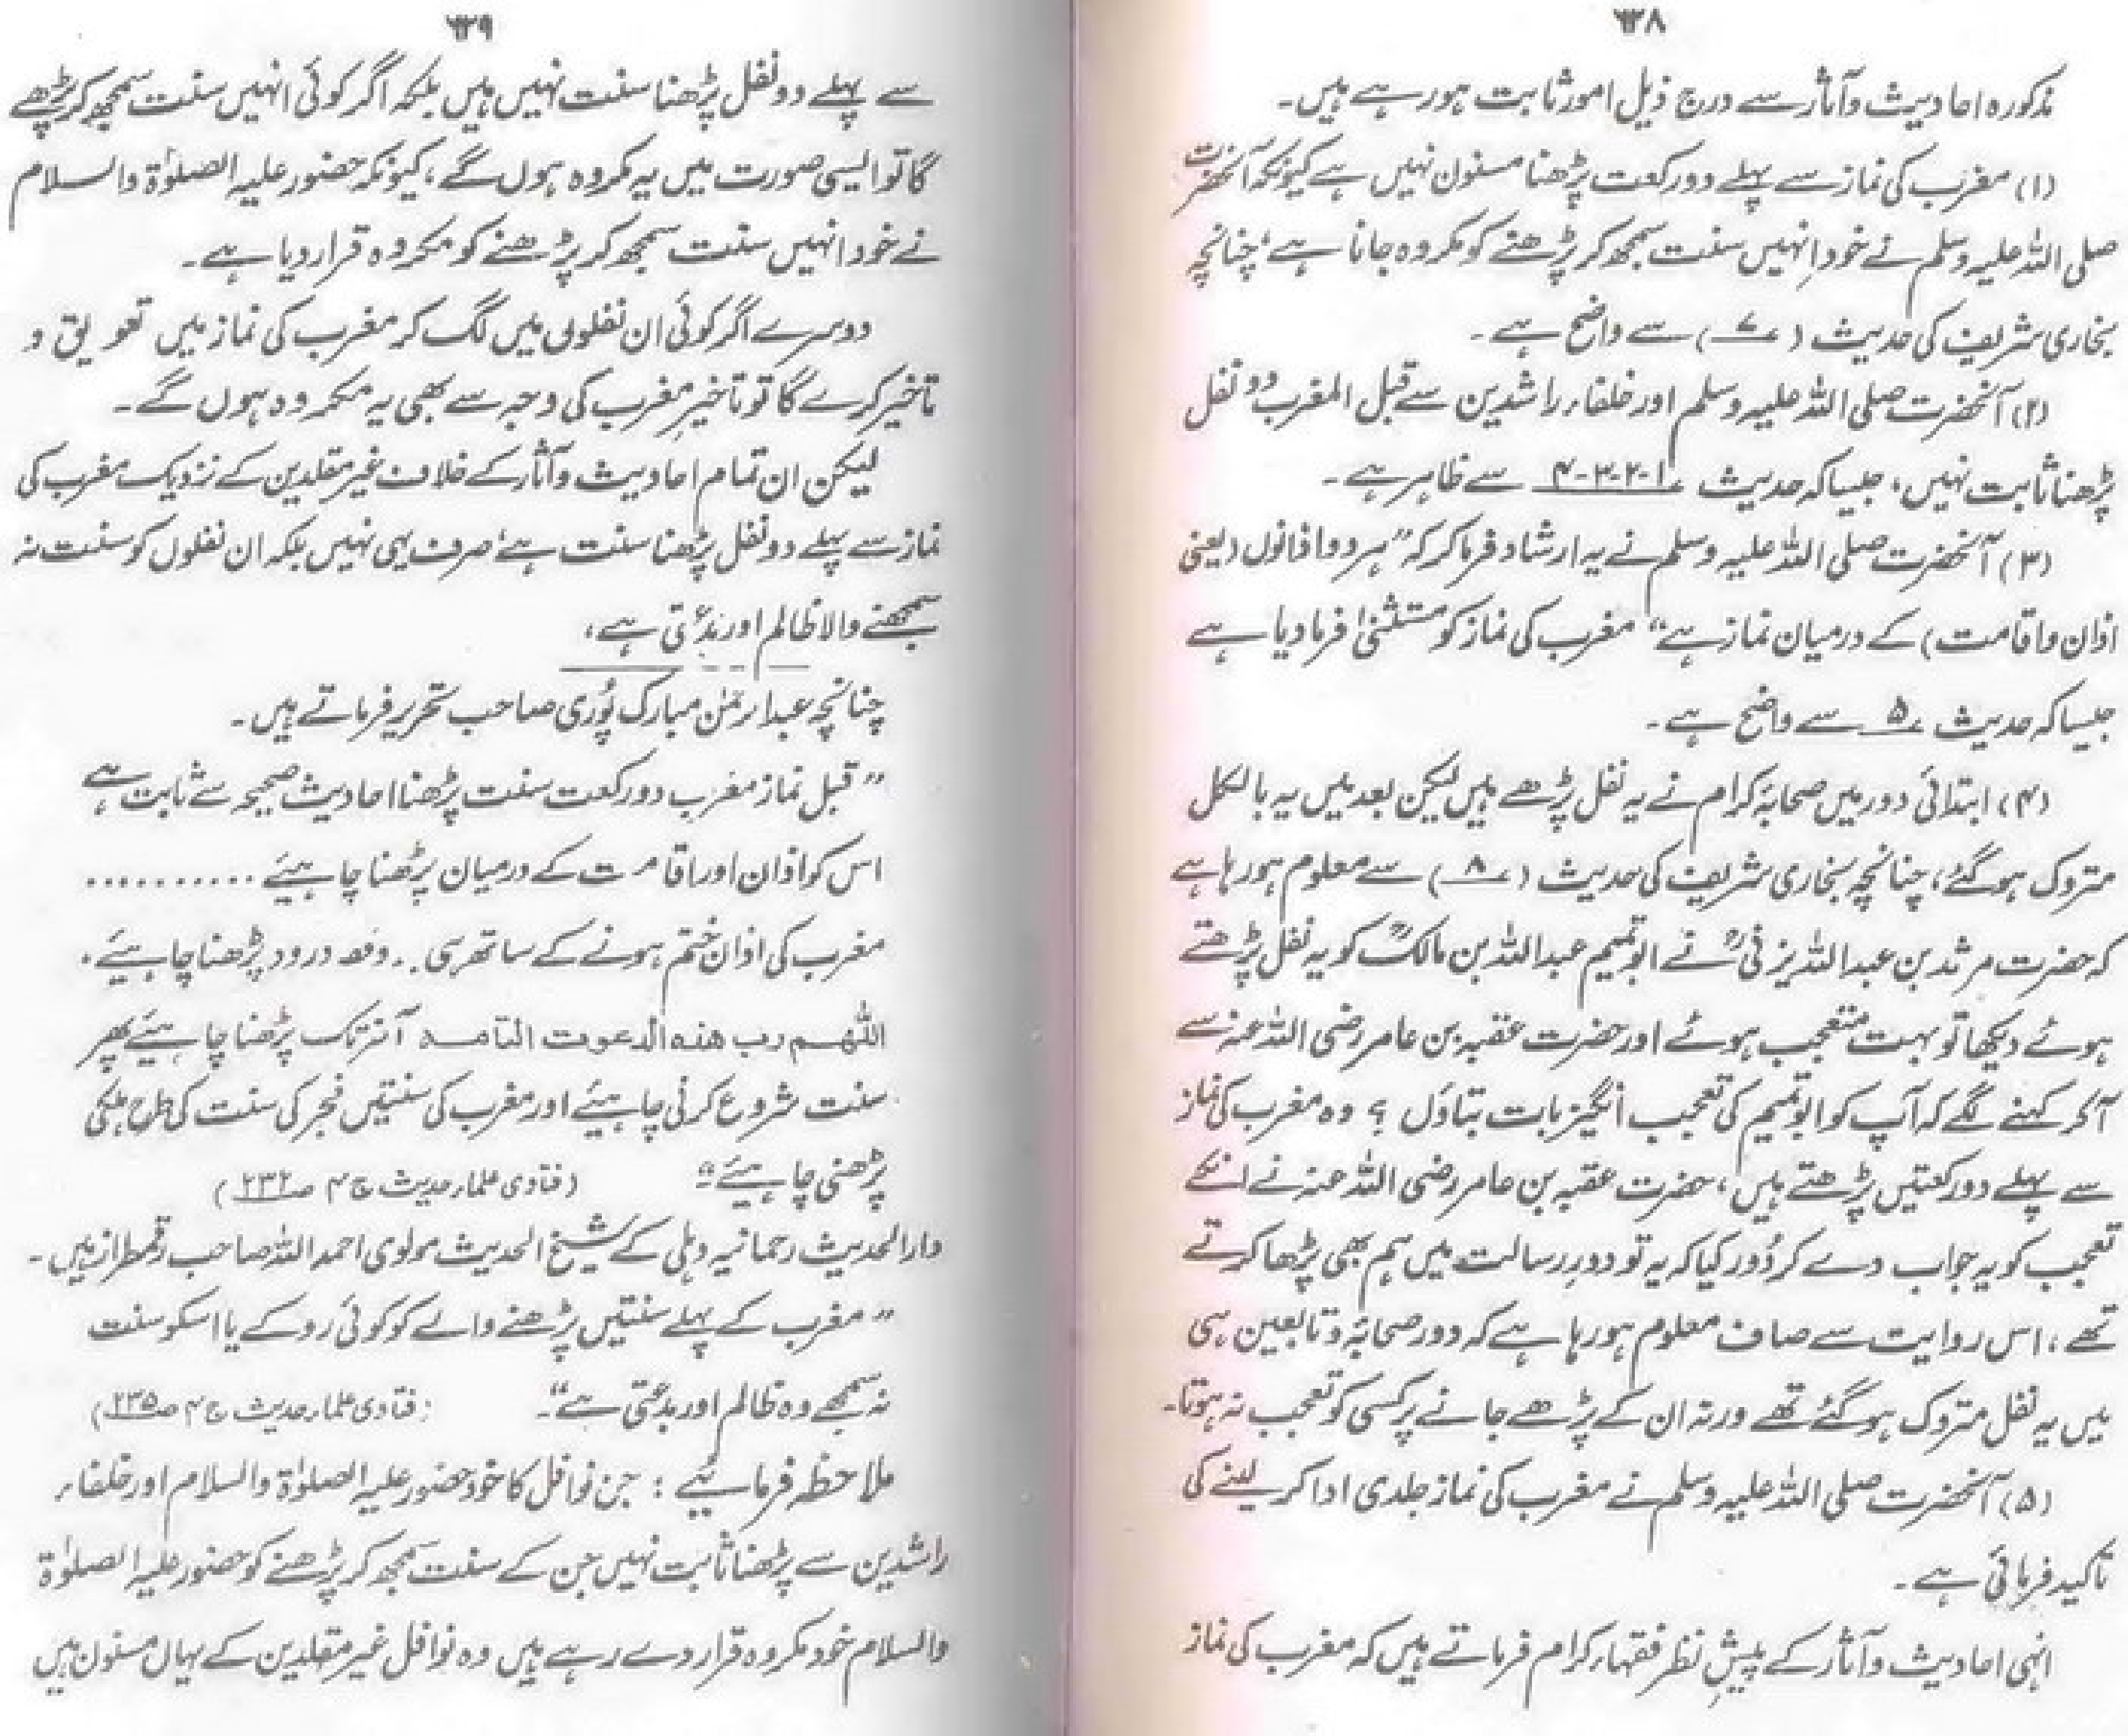 ۶۳۸
مذکورہ احادیث وآثار سے درج ذیل امور ثابت ہورہے ہیں۔
(۱) مغرب کی نماز سے پہلے دو رکعت پڑھنا مسنون نہیں ہے کیونکہ آنحضرت
صلی اللہ علیہ وسلم نے خود انہیں سنت سمجھ کر پڑھنے کو مکروہ جانا ہے، چنانچہ
بخاری شریف کی حدیث (۷) سے واضح ہے۔
(۲) آنحضرت صلی اللہ علیہ وسلم اور خلفاء راشدین سے قبل المغرب دو نفل
پڑھنا ثابت نہیں، جیسا کہ حدیث ۱-۲-۳-۴ سے ظاہر ہے۔
(۳) آنحضرت صلی اللہ علیہ وسلم نے یہ ارشاد فرما کر کہ "ہر دو اذانوں (یعنی
اذان واقامت) کے درمیان نماز ہے" مغرب کی نماز کو مستثنیٰ فرما دیا ہے
جیسا کہ حدیث ۵ سے واضح ہے۔
(۴) ابتدائی دور میں صحابہ کرام نے یہ نفل پڑھے ہیں لیکن بعد میں یہ بالکل
متروک ہو گئے، چنانچہ بخاری شریف کی حدیث (۸) سے معلوم ہورہا ہے
کہ حضرت مرثد بن عبداللہ یزنیؒ نے ابوتمیم عبداللہ بن مالکؒ کو یہ نفل پڑھتے
ہوئے دیکھا تو بہت متعجب ہوئے اور حضرت عقبہ بن عامر رضی اللہ عنہ سے
آکر کہنے لگے کہ آپ کو ابوتمیم کی تعجب انگیز بات بتاؤں ؟ وہ مغرب کی نماز
سے پہلے دو رکعتیں پڑھتے ہیں، حضرت عقبہ بن عامر رضی اللہ عنہ نے انکے
تعجب کو یہ جواب دے کر دُور کیا کہ یہ تو دورِ رسالت میں ہم بھی پڑھا کرتے
تھے، اس روایت سے صاف معلوم ہورہا ہے کہ دور صحابہؓ وتابعین ہی
میں یہ نفل متروک ہو گئے تھے ورنہ ان کے پڑھے جانے پر کسی کو تعجب نہ ہوتا۔
(۵) آنحضرت صلی اللہ علیہ وسلم نے مغرب کی نماز جلدی ادا کر لینے کی
تاکید فرمائی ہے۔
انہی احادیث وآثار کے پیشِ نظر فقہاء کرام فرماتے ہیں کہ مغرب کی نماز
۶۳۹
سے پہلے دو نفل پڑھنا سنت نہیں ہیں بلکہ اگر کوئی انہیں سنت سمجھ کر پڑھے
گا تو ایسی صورت میں یہ مکروہ ہوں گے، کیونکہ حضور علیہ الصلوٰۃ والسلام
نے خود انہیں سنت سمجھ کر پڑھنے کو مکروہ قرار دیا ہے۔
دوسرے اگر کوئی ان نفلوں میں لگ کر مغرب کی نماز میں تعویق و
تاخیر کرے گا تو تاخیرِ مغرب کی وجہ سے بھی یہ مکروہ ہوں گے۔
لیکن ان تمام احادیث وآثار کے خلاف غیر مقلدین کے نزدیک مغرب کی
نماز سے پہلے دو نفل پڑھنا سنت ہے، صرف یہی نہیں بلکہ ان نفلوں کو سنت نہ
سمجھنے والا ظالم اور بدعتی ہے،
چنانچہ عبدالرحمٰن مبارک پُوری صاحب تحریر فرماتے ہیں۔
"قبل نماز مغرب دو رکعت سنت پڑھنا احادیث صحیحہ سے ثابت ہے
اس کو اذان اور اقامت کے درمیان پڑھنا چاہیئے ..........
مغرب کی اذان ختم ہونے کے ساتھ ہی .. درود پڑھنا چاہیئے۔
اللهم رب هذه الدعوت التامه آخر تک پڑھنا چاہیئے پھر
سنت شروع کرنی چاہیئے اور مغرب کی سنتیں فجر کی سنت کی طرح ہلکی
پڑھنی چاہیئے" (فتاویٰ علماء حدیث ج ۴ ص۲۳۲)
دارالحدیث رحمانیہ دہلی کے شیخ الحدیث مولوی احمد اللہ صاحب رقمطراز ہیں۔
"مغرب کے پہلے سنتیں پڑھنے والے کو کوئی روکے یا اسکو سنت
نہ سمجھے وہ ظالم اور بدعتی ہے"۔ (فتاویٰ علماء حدیث ج ۴ ص۲۳۵)
ملاحظہ فرمائیے : جن نوافل کا خود حضور علیہ الصلوٰۃ والسلام اور خلفاء
راشدین سے پڑھنا ثابت نہیں جن کے سنت سمجھ کر پڑھنے کو حضور علیہ الصلوٰۃ
والسلام خود مکروہ قرار دے رہے ہیں وہ نوافل غیر مقلدین کے یہاں مسنون ہیں